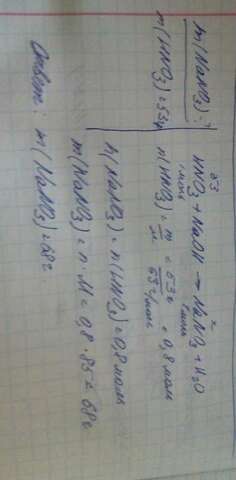 m(NaNO₃)-?
m(HNO₃)=53г
53 x
HNO₃ + NaOH → NaNO₃ + H₂O
1 моль 1 моль
n(HNO₃) = m/M = 53г/63 г/моль = 0,8 моль
n(NaNO₃) = n(HNO₃) = 0,8 моль
m(NaNO₃) = n·M = 0,8·85 = 68г.
Ответ: m(NaNO₃)=68г.